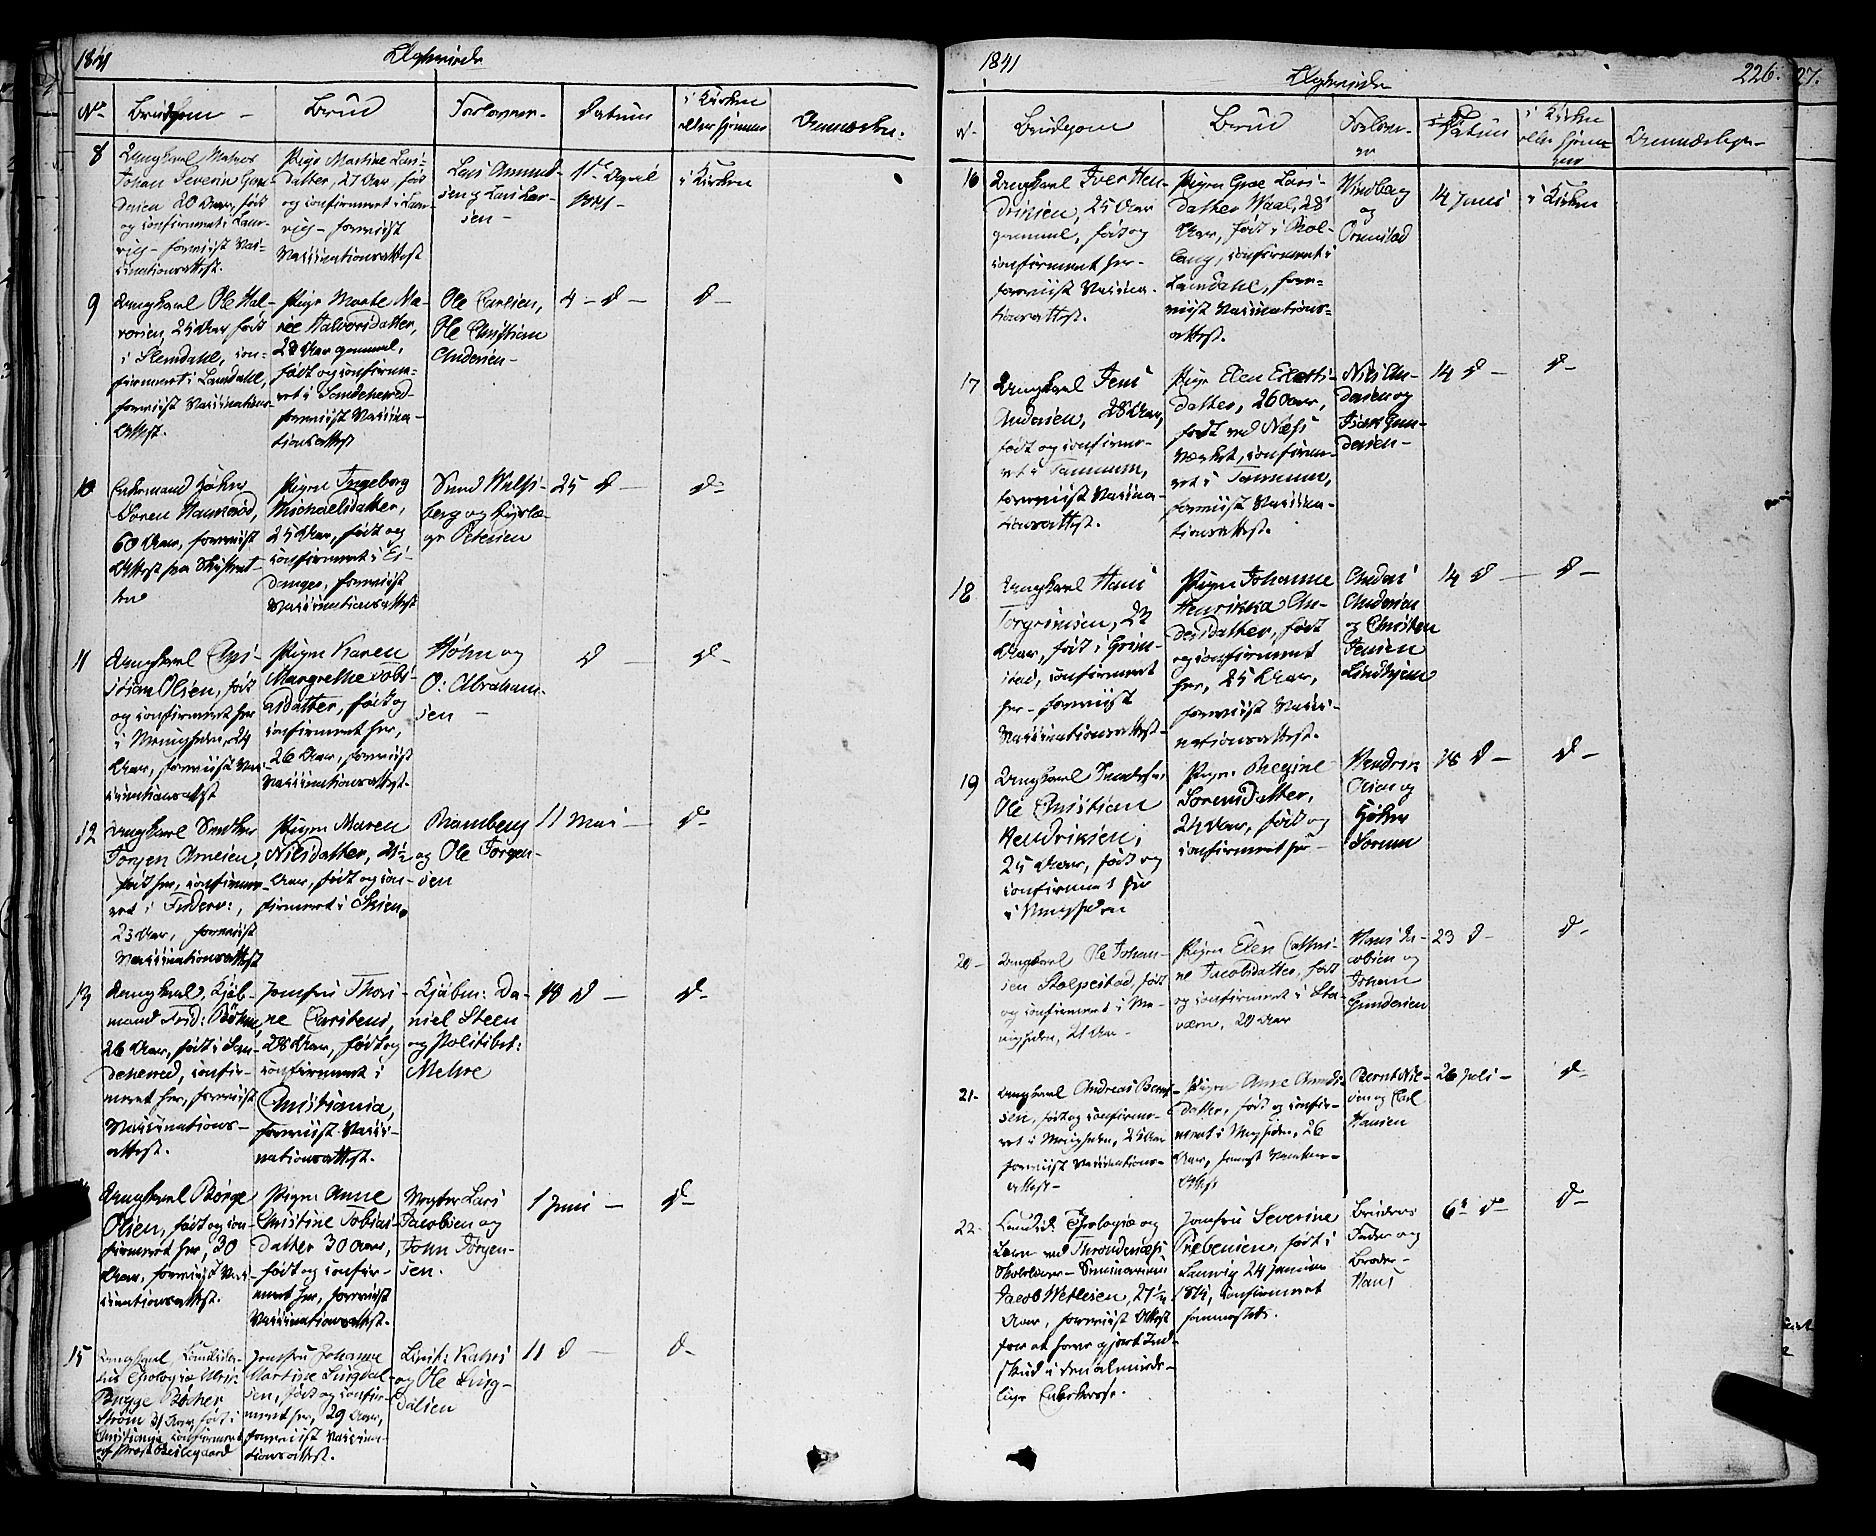 1841
Ægteviede
No
Brudgom
Brud
Forlovere
Datum
i Kirken
eller hjemme
Anmærkn.
8
Ungkarl Matros
Johan Severin
20 Aar, født
og confirmeret i Laur-
vig - foreviist Vac-
cinationsattest.
Pige Martine Lars-
datter, 27 Aar, født
og confirmeret i Laur-
vig - foreviist
Vaccinationsattest
Lars Amund-
sen og Lars Lar-
sen -
1ste April
1841 -
i Kirken
9
Ungkarl Ole Hal-
vorsen, 25 Aar født
i Slemdahl, con-
firmeret i Laurdahl,
foreviist Vaccinations-
Attest.
Pige Marte Ma-
rie Halvorsdatter,
28 Aar gammel,
født og confirme-
ret i Sandeherred -
foreviist Vaccina-
tionsattest
Ole Carlsen,
Ole Christian
Andersen -
4 - d -
d -
10
Enkemand Høker
Søren
60 Aar, foreviist
Attest fra Skifteret-
ten
Pigen Ingeborg
Michaelsdatter,
25 Aar, født og
confirmeret i Ei-
danger, foreviist
Vaccinationsattest
Svend Wulfs-
berg og
Petersen
25 d -
d -
11
Ungkarl Chri-
stian Olsen, født
og confirmeret her
i Menigheden, 24
Aar, foreviist Vac-
cinationsattest
Pigen Karen
Margrethe Tobi-
asdatter, født og
confirmeret her,
26 Aar, foreviist
Vaccinationsattest.
Høhn og
O: Abraham-
sen -
d -
d -
12
Ungkarl Snedker
Jørgen Arnesen,
født her, confirme-
ret i Frederv:,
23 Aar, foreviist
Vaccinationsattest
Pigen Maren
Nilsdatter, 21½
Aar, født og con-
firmeret i Skien,
Ramberg
og Ole Jørgen-
sen
11 Mai -
d -
13
Ungkarl, Kjøb-
mand Fred: Bøhm,
26 Aar, født i San-
deherred, confir-
meret her, foreviist
Vaccinations-
attest.
Jomfru Thori-
ne Carstens,
28 Aar, født og
confirmeret i
Christiania,
foreviist Vacci-
nationsattest.
Kjøbm: Da-
niel Steen
og Politibet:
Mehre
18 d -
d -
Ungkarl Børge
Olsen, født og con-
firmeret her, 30
Aar, foreviist Vac-
cinationsattest.
Pigen Anne
Christine Tobias-
datter 30 Aar,
født og confir-
meret her, foreviist
Vaccinationsattest.
Vægter Lars
Jacobsen og
John Jørgen-
sen.
1 Juni -
d -
15
Ungkarl, Candida-
tus Theologiæ Ulrik
Brygge Bøcher
Strøm 31 Aar, født i
Christiania, confirmeret
af Provst
Jomfru Johanne
Martine Lingdal-
sen, født og confir-
meret her, 29 Aar,
foreviist Vaccina-
tionsattest.
Lieut: Kahrs
og Ole Ling-
dalsen
11 d -
d -
1841
Ægteviede
226.
27.
N.
Brudgom
Brud
Forlove-
re
Datum
i Kirken
eller hjem-
me
Anmærkning
16
Ungkarl Iver Hen-
driksen, 25 Aar
gammel, født og
confirmeret her -
foreviist Vaccina-
tionsattest.
Pigen Groe Lars-
datter Waal, 28
Aar, født i Thol-
lang, confirmeret i
Laurdahl, fore-
viist Vaccinations-
attest.
Windberg
og
Ormstad
14 Juni
i Kirken
17
Ungkarl Jens
Andersen, 28 Aar,
født og confirme-
ret i Tanum,
foreviist Vaccina-
tionsattest.
Pige Elen Eilerts-
datter, 26 Aar,
født ved Næss
Værket, confirme-
ret i Tanum,
foreviist Vaccina-
tionsattest.
Nils An-
dersen og
Isak Gun-
dersen -
14 d -
d -
18
Ungkarl Hans
Torgrimsen, 22
Aar, født i Grim-
stad, confirmeret
her - foreviist
Vaccinationsattest -
Pigen Johanne
Henrikka An-
dersdatter, født
og confirmeret
her, 25 Aar,
foreviist Vacci-
nationsattest.
Anders
Andersen
og Christen
Jensen
Lindhjem
14 d -
d -
19
Ungkarl
Ole Christian
Hendriksen,
25 Aar, født og
confirmeret her
i Menigheden
Pigen Regine
Sørensdatter,
24 Aar, født og
confirmeret her -
Hendrik
Olsen og
Høker
Sorum
18 d -
d -
20 -
Ungkarl Ole Johan-
sen Stolpestad, født
og confirmeret i Me-
nigheden, 21 Aar -
Pigen Elen Cathri-
ne Jacobsdatter, født
og confirmeret i Sta-
værn, 20 Aar
Hans Ja-
cobsen og
Johan
Gundersen
23 d -
d -
21 -
Ungkarl Andreas Bernt-
sen, født og confirme-
ret i Menigheden, 25 Aar
foreviist Vaccinations-
attest -
Pigen Anne Arnds-
datter, født og confir-
meret i Menigheden, 26
Aar, foreviist Vaccinat-
Attest
Bernt Nil-
sen og Carl
Hansen
26 Juli -
d -
22 -
Candid: Theologiæ og
Lærer ved Throndenæss
Skolelærer - Seminarium
Jacob Wetlesen, 27½
Aar, foreviist Attest
for at have gjort Ind-
skud i den alminde-
lige Enkekasse.
Jomfru Severine
Prebensen, født i
Laurvig 24 Januar
1814, confirmeret
sammesteds.
Brudens
Fader og
Broder -
Hans
6te d -
d -